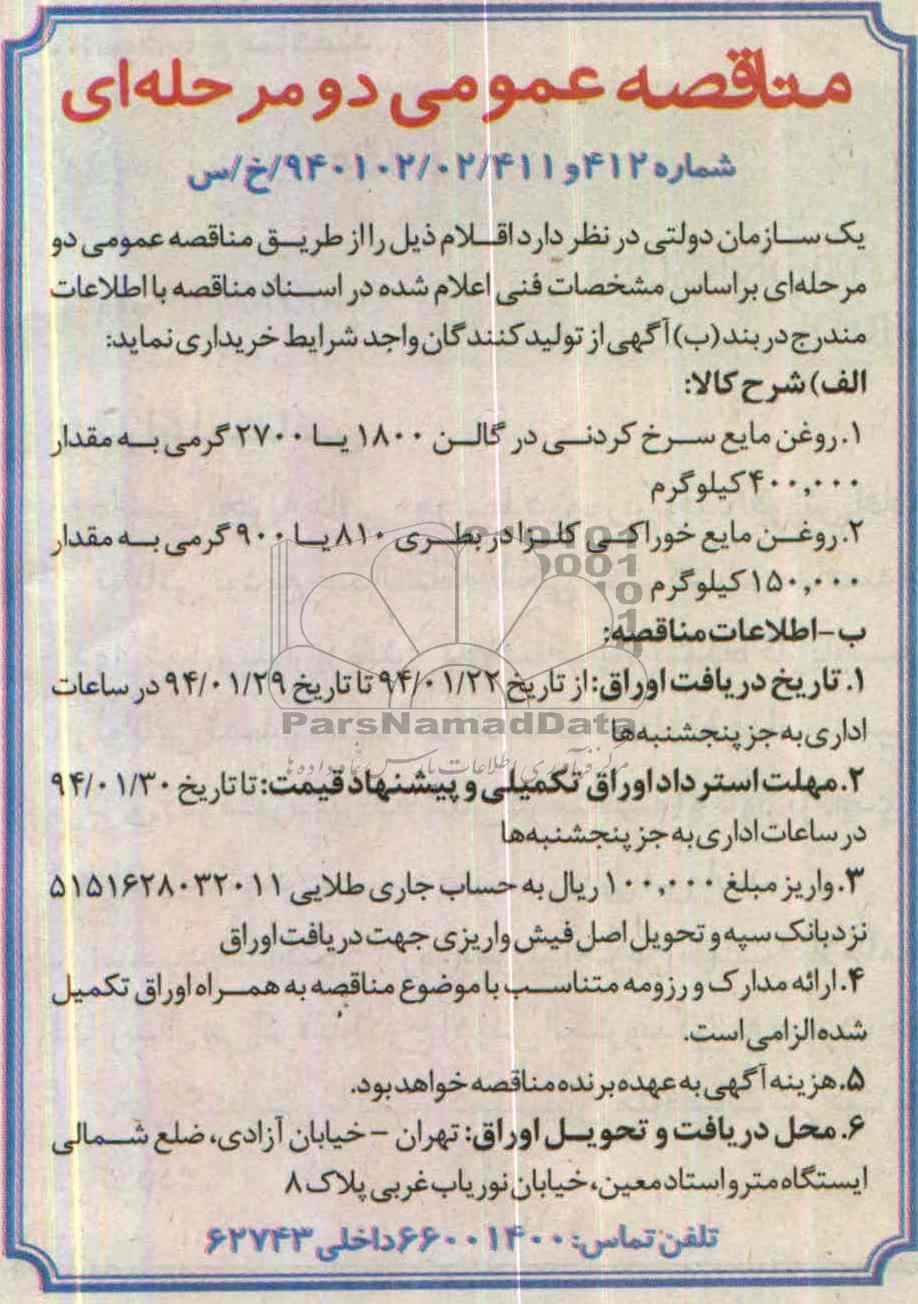 مناقصه عمومی دو مرحله‌ای
شماره ۴۱۲ و ۹۴۰۱۰۲/۰۲/۴۱۱/خ/س
یک سازمان دولتی در نظر دارد اقلام ذیل را از طریق مناقصه عمومی دو
مرحله‌ای براساس مشخصات فنی اعلام شده در اسناد مناقصه با اطلاعات
مندرج در بند (ب) آگهی از تولیدکنندگان واجد شرایط خریداری نماید:
الف) شرح کالا:
۱. روغن مایع سرخ کردنی در گالن ۱۸۰۰ یا ۲۷۰۰ گرمی به مقدار
۴۰۰,۰۰۰ کیلوگرم
۲. روغن مایع خوراکی کلزا در بطری ۸۱۰ یا ۹۰۰ گرمی به مقدار
۱۵۰,۰۰۰ کیلوگرم
ب-اطلاعات مناقصه:
۱. تاریخ دریافت اوراق: از تاریخ ۹۴/۰۱/۲۲ تا تاریخ ۹۴/۰۱/۲۹ در ساعات
اداری به جز پنجشنبه‌ها
ParsNamadData
مرکز فرآوری اطلاعات پارس نماد داده ها
۲. مهلت استرداد اوراق تکمیلی و پیشنهاد قیمت: تا تاریخ ۹۴/۰۱/۳۰
در ساعات اداری به جز پنجشنبه‌ها
۳. واریز مبلغ ۱۰۰,۰۰۰ ریال به حساب جاری طلایی ۵۱۵۱۶۲۸۰۳۲۰۱۱
نزد بانک سپه و تحویل اصل فیش واریزی جهت دریافت اوراق
۴. ارائه مدارک و رزومه متناسب با موضوع مناقصه به همراه اوراق تکمیل
شده الزامی است.
۵. هزینه آگهی به عهده برنده مناقصه خواهد بود.
۶. محل دریافت و تحویل اوراق: تهران - خیابان آزادی، ضلع شمالی
ایستگاه مترو استاد معین، خیابان نوریاب غربی پلاک ۸
تلفن تماس: ۶۶۰۰۱۴۰۰ داخلی ۶۲۷۴۳